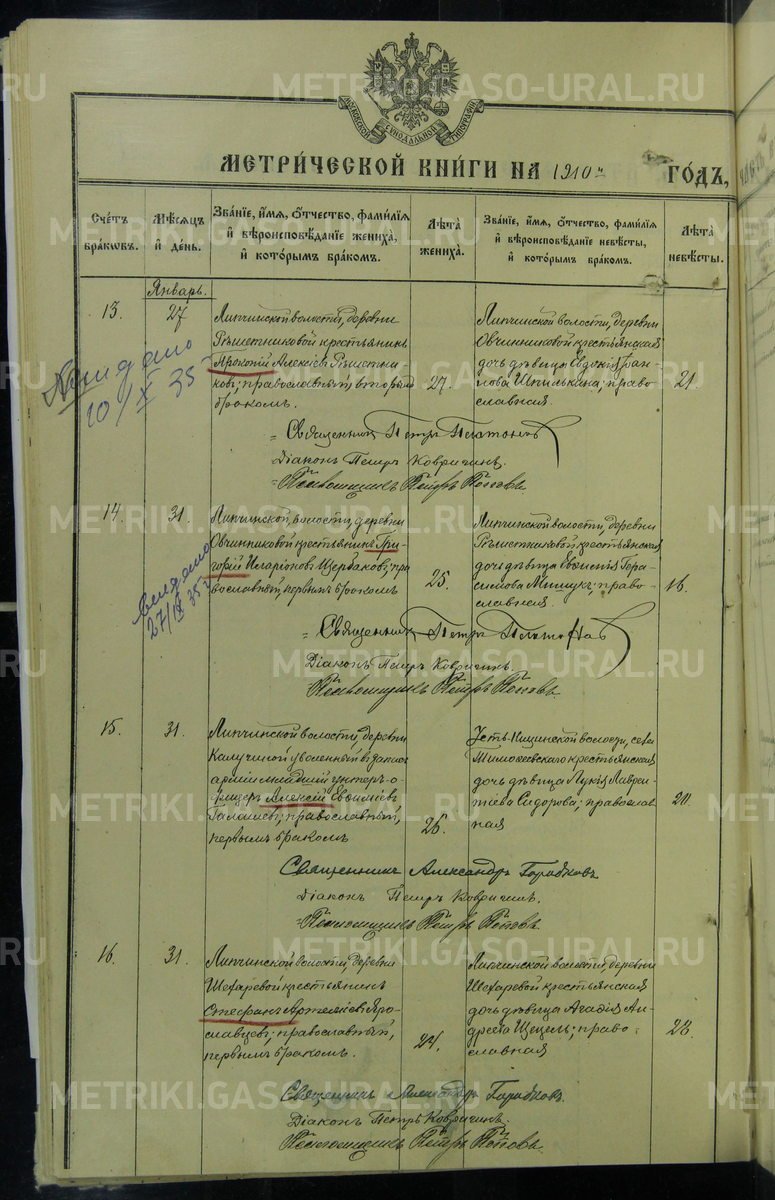 МОСКОВСКОЙ СѴНОДАЛЬНОЙ ТИПОГРАФІИ
МЕТРИ́ЧЕСКОЙ КНИ́ГИ НА 1910 й ГО́ДЪ,
Сче́тъ бра́ковъ.
Мѣ́сяцъ и҆ день.
Зва́нїе, и҆́мѧ, ѻ҆́тчество, фами́лїѧ и҆ вѣроисповѣ́данїе жениха̀, и҆ кото́рымъ бра́комъ.
Лѣ́та жениха̀.
Зва́нїе, и҆́мѧ, ѻ҆́тчество, фами́лїѧ и҆ вѣроисповѣ́данїе невѣ́сты, и҆ кото́рымъ бра́комъ.
Лѣ́та невѣ́сты.
Январь.
13.
27
Липчинской волости, деревни
Рѣшетниковой крестьянинъ
Прокопій Алексіевъ Рѣшетни-
ковъ; православный, вторымъ
бракомъ.
27.
Липчинской волости, деревни
Овчинниковой крестьянская
дочь дѣвица Евдокія
Шпилькина; право-
славная.
21.
Выдано
10/X 35 г
Священникъ Петръ Платоновъ
Діаконъ Петръ Ковригинъ.
Псаломщикъ Петръ Поповъ
14.
31.
Липчинской волости, деревни
Овчинниковой крестьянинъ Гри-
горій Иларіоновъ Щербаковъ; пра-
вославный, первымъ бракомъ
25.
Липчинской волости, деревни
Рѣшетниковой крестьянская
дочь дѣвица Евѳимія Гера-
симова; право-
славная.
16.
Выдано
27/IX 35 г
Священникъ Петръ Платоновъ
Діаконъ Петръ Ковригинъ.
Псаломщикъ Петръ Поповъ.
15
31.
Липчинской волости, деревни
Калугиной уволенный въ запасъ
арміи младшій унтеръ-о-
фицеръ Алексій Евѳиміевъ
православный,
первымъ бракомъ
26.
Усть-Ницинской волости, села
крестьянская
дочь дѣвица Лукія Лаврен-
тіева Сидорова; православ-
ная
20.
Священникъ Александръ Горабковъ
Діаконъ Петръ Ковригинъ.
Псаломщикъ Петръ Поповъ.
16.
31.
Липчинской волости, деревни
Шехаревой крестьянинъ
Стефанъ Артеміевъ Яро-
славцевъ; православный,
первымъ бракомъ.
24.
Липчинской волости, деревни
Шехаревой крестьянская
дочь дѣвица Агаѳія Ан-
дреева; право-
славная
23.
Священникъ Александръ Горабковъ.
Діаконъ Петръ Ковригинъ.
Псаломщикъ Петръ Поповъ.
METRIKI.GASO-URAL.RU